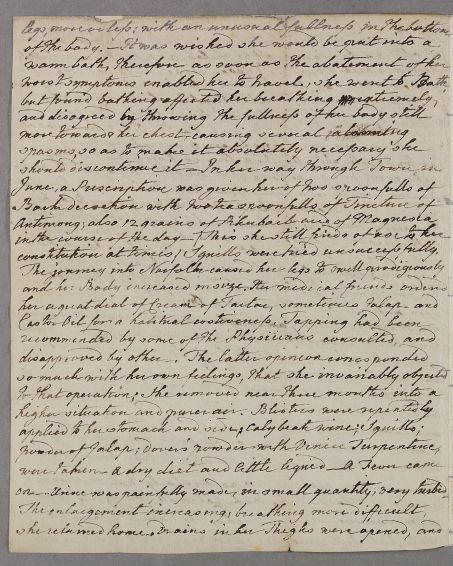 legs, more or less; with an unusual fullness in the bottom
of the body. — It was wished she would be put into a
warm bath, therefore as soon as the abatement of her
worst symptoms enabled her to travel, she went to Bath
but found bathing affected her breathing extremely,
and disagreed by throwing the fullness of her body still
more towards her chest, causing several alarming
spasms, so as to make it absolutely necessary she
should discontinue it — In her way through Town, in
June, a Prescription was given her of two spoonfulls of
Bark decoction with two teaspoonfulls of Tincture of
Antimony; also 12 grains of Rhubarb and of Magnesia
in the course of the day — (This she still finds of use to her
constitution at times) Squills were tried unsuccessfully.
The journey into Norfolk caused her legs to swell prodigiously
and her Body encreased in size. Her medical friends ordered
her a great deal of Cream of Tartar, sometimes Jalap and
Castor Oil for a habitual costiveness. Tapping had been
recommended by some of the Physicians consulted, and
disapproved by other. The latter opinion corresponded
so much with her own feelings, that she invariably objected
to that operation; she removed near three months into a
higher situation and purer air. Blisters were repeatedly
applied to her stomach and side; calybeate wine; Squills;
powder of Jalap; Dover's powder with Venice Turpentine,
were taken — a dry diet and little liquid — a Fever came
on — Urine was painfully made, in small quantity, very turbid
The enlargement increasing, breathing more difficult,
she returned home. Drains in her Thighs were opened, and